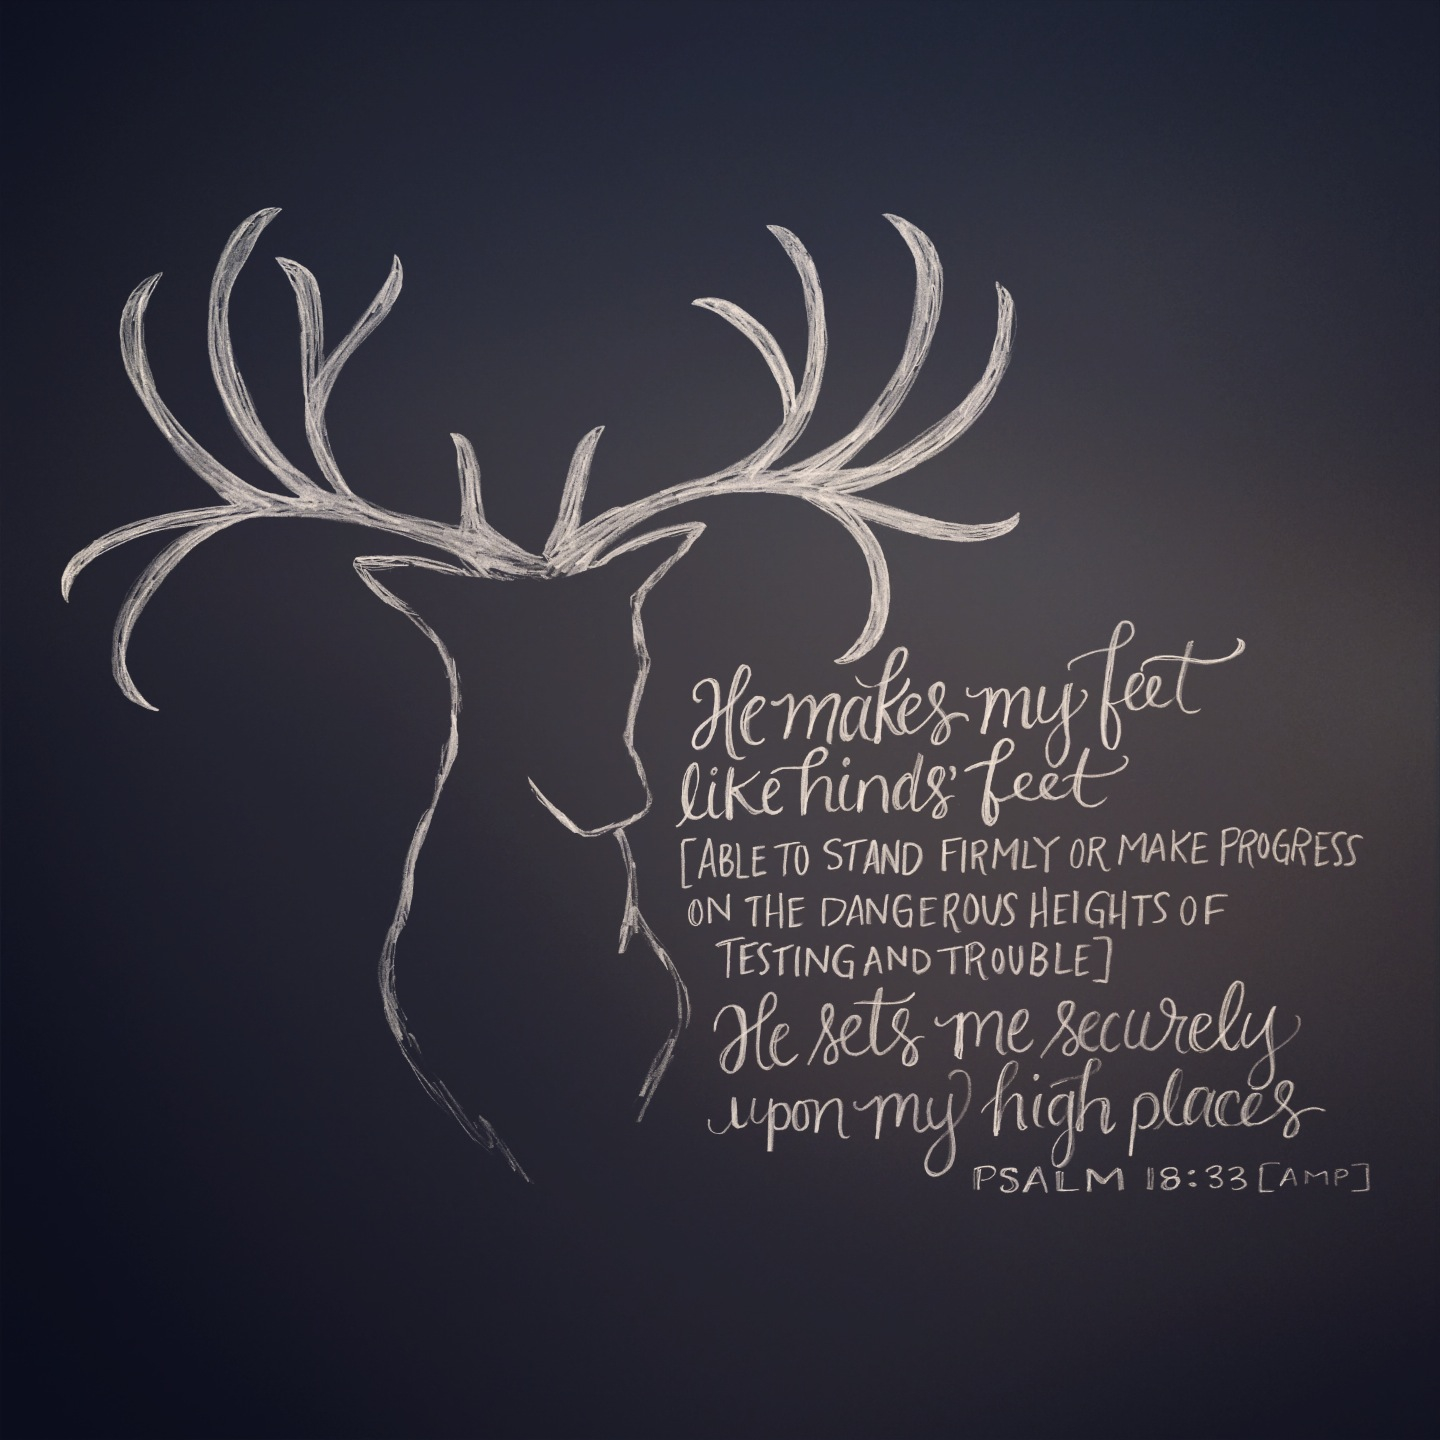 He makes my feet
like hinds' feet
[ABLE TO STAND FIRMLY OR MAKE PROGRESS
ON THE DANGEROUS HEIGHTS OF
TESTING AND TROUBLE]
He sets me securely
upon my high places
PSALM 18:33 [AMP]